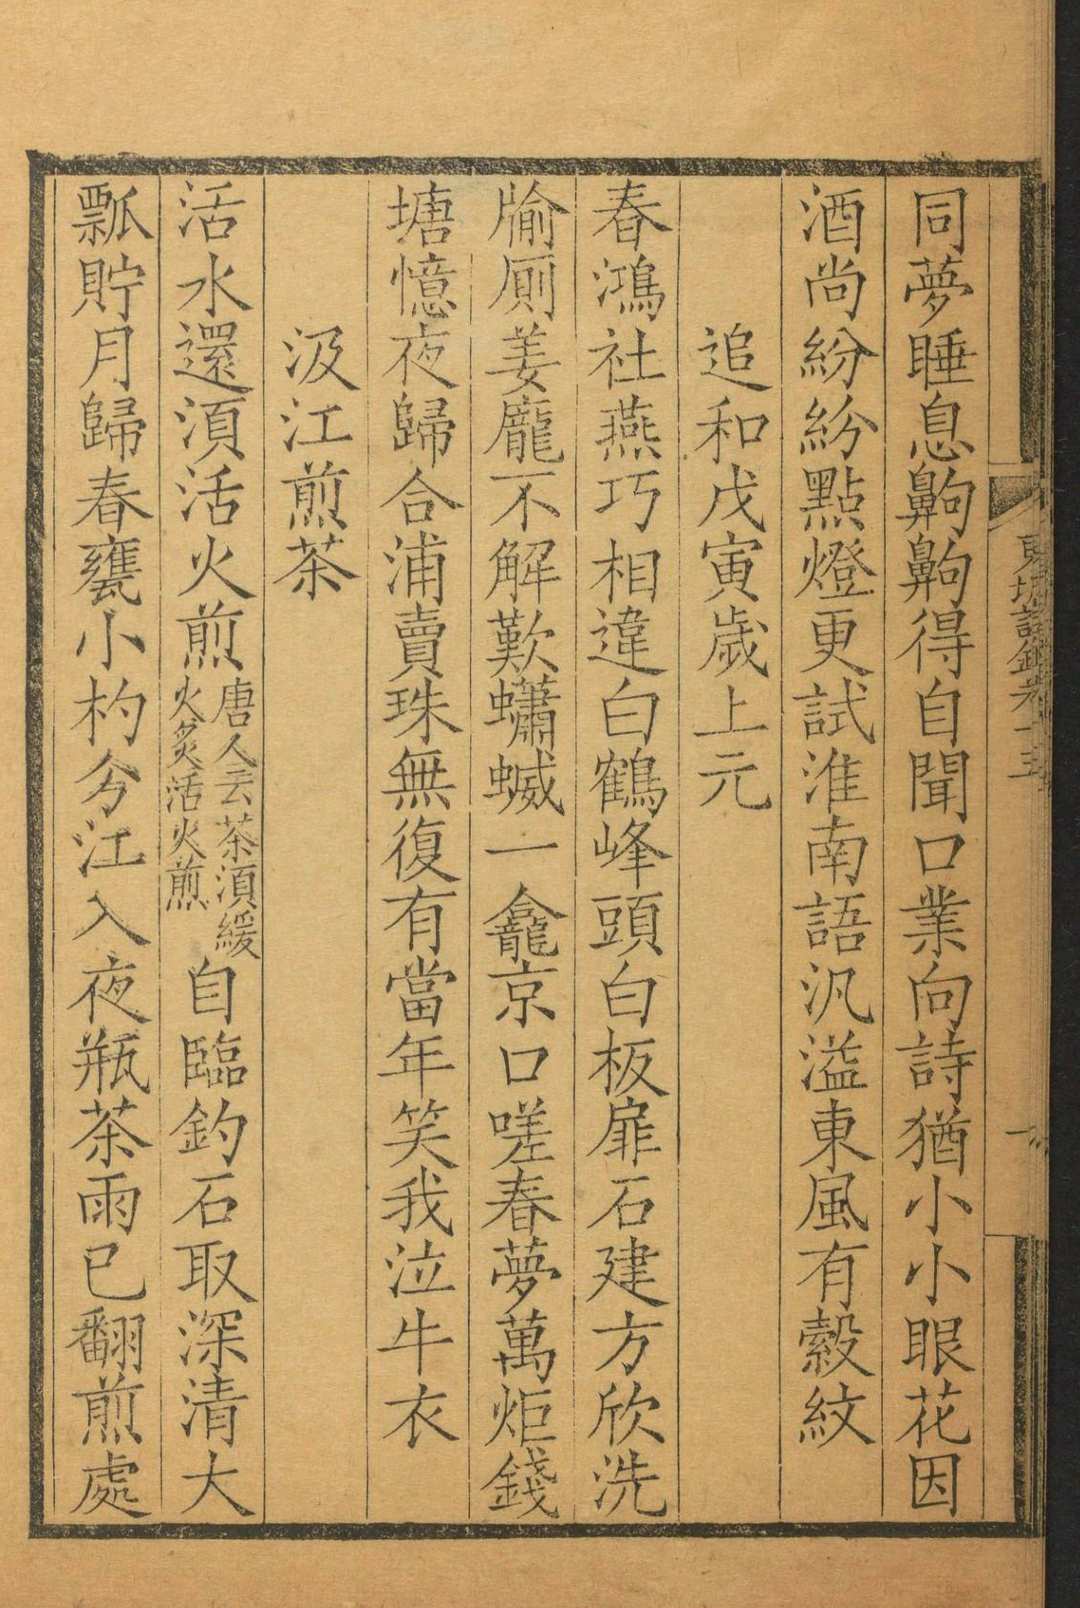 同夢睡息齁齁得自聞口業向詩猶小小眼花因
酒尚紛紛點燈更試淮南語汎溢東風有縠紋
追和戊寅歲上元
春鴻社燕巧相違白鶴峰頭白板扉石建方欣洗
牏厠姜龐不解歎蠨蠨一龕京口嗟春夢萬炬錢
塘憶夜歸合浦賣珠無復有當年笑我泣牛衣
汲江煎茶
活水還湏活火煎唐人云茶湏緩火炙活火煎自臨釣石取深清大
瓢貯月歸春甕小杓分江入夜瓶茶雨已翻煎處